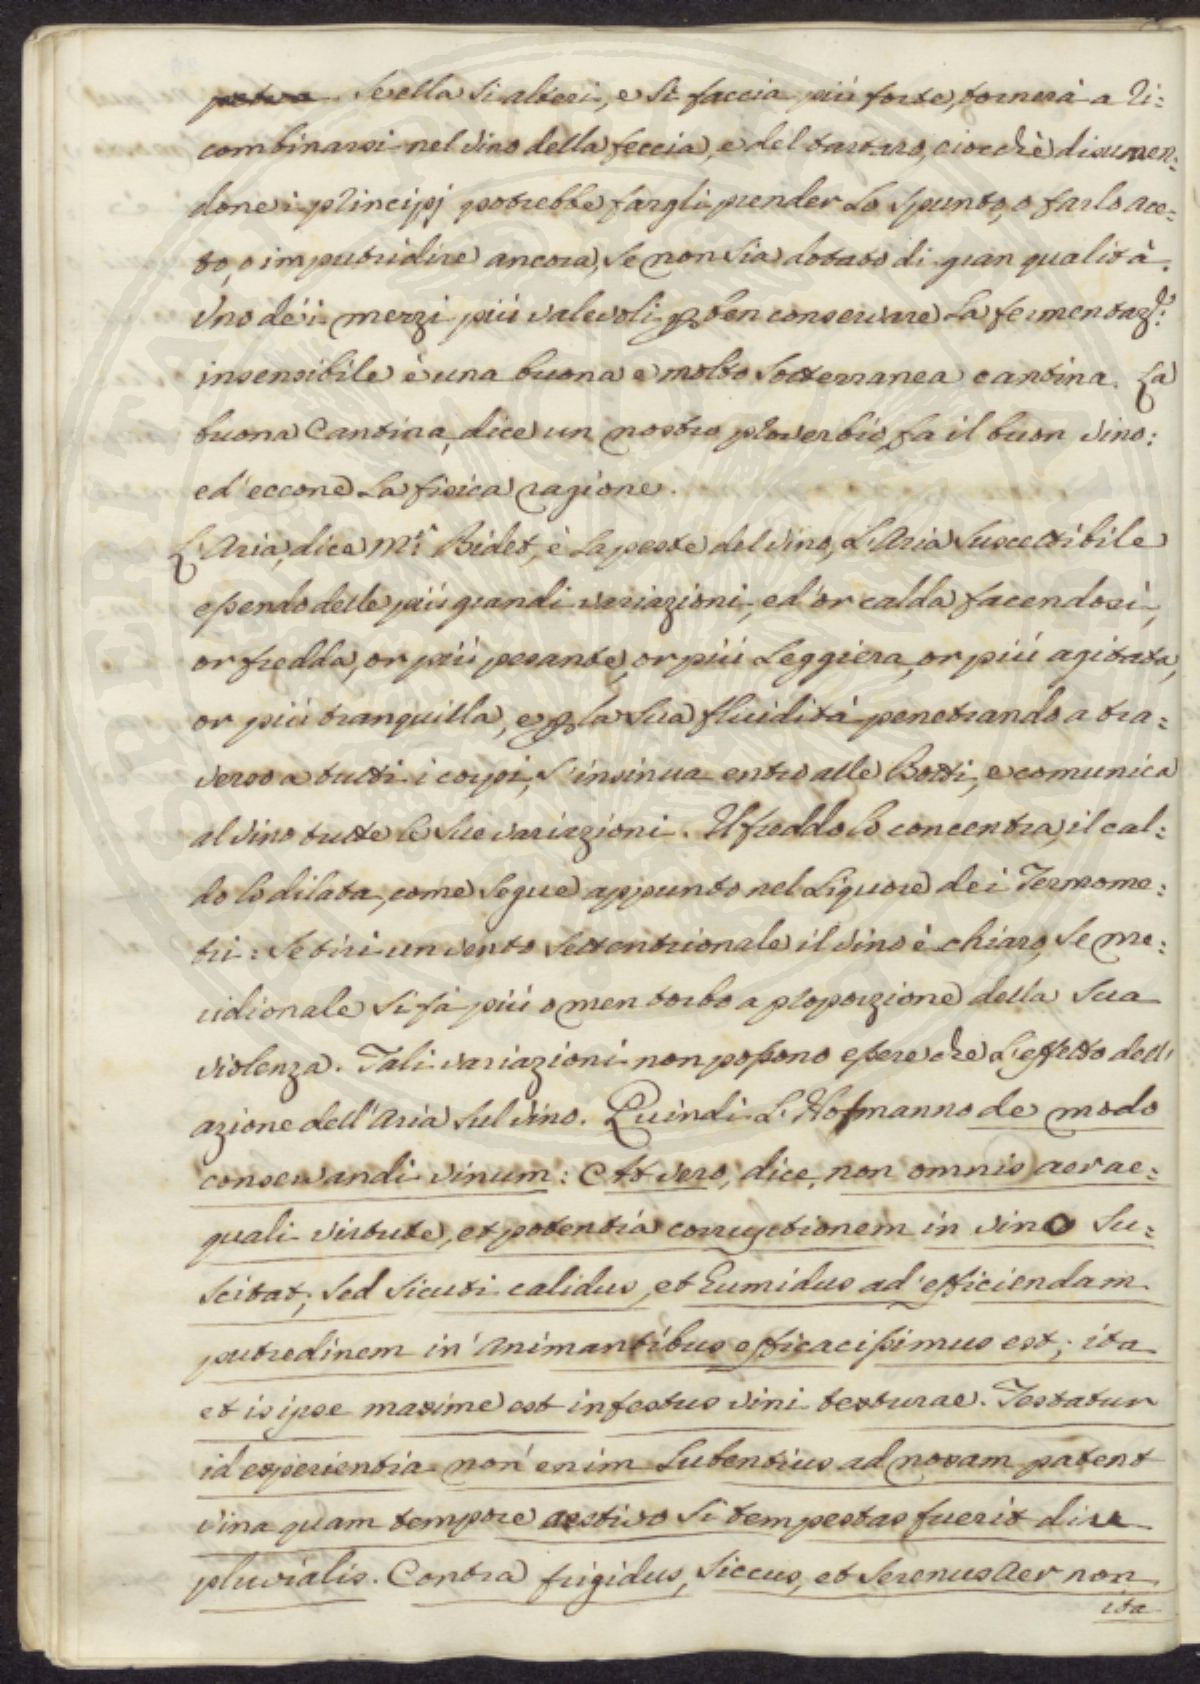 Se ella si alteri, e si faccia più forte, tornerà a ri:
combinarsi nel vino della feccia, e del tartaro, ciocchè disunen:
done i principj potrebbe fargli prender lo spunto, o farlo ace:
to, o imputridire ancora, se non sia dotato di gran qualità.
Uno dei mezzi più valevoli p ben conservare la fermentaz.e
insensibile è una buona e molto sotterranea cantina. La
buona Cantina, dice un nostro proverbio, fa il buon vino:
ed'eccone la fisica ragione.
L'Aria, dice M.r Bidet, è la peste del vino, L'Aria suscettibile
essendo delle più grandi variazioni, ed'or calda facendosi,
or fredda, or più pesante, or più leggiera, or più agitata,
or più tranquilla, e p la sua fluidità penetrando a tra:
verso a tutti i corpi, s'insinua entro alle Botti, e comunica
al vino tutte le sue variazioni. Il freddo lo concentra, il cal:
do lo dilata, come segue appunto nel Liquore dei Termome:
tri: Se tiri un vento settentrionale il vino è chiaro, se me:
ridionale si fà più o men torbo a proporzione della sua
violenza. Tali variazioni non possono essere che L'effetto dell'
azione dell'Aria sul vino. Quindi L'Hofmanno de modo
conservandi vinum: At vero, dice, non omnis aer ae:
quali virtute, et potentia corruptionem in vino su:
scitat, sed sicuti calidus, et humidus ad'efficiendam
putredinem in animantibus efficacissimus est; ita
et is ipse maxime est infestus vini texturae. Testatur
id experientia non enim lubentius ad noxam patent
vina quam tempore aestivo si tempestas fuerit diu
pluvialis. Contra frigidus, siccus, et serenus aer non
ita